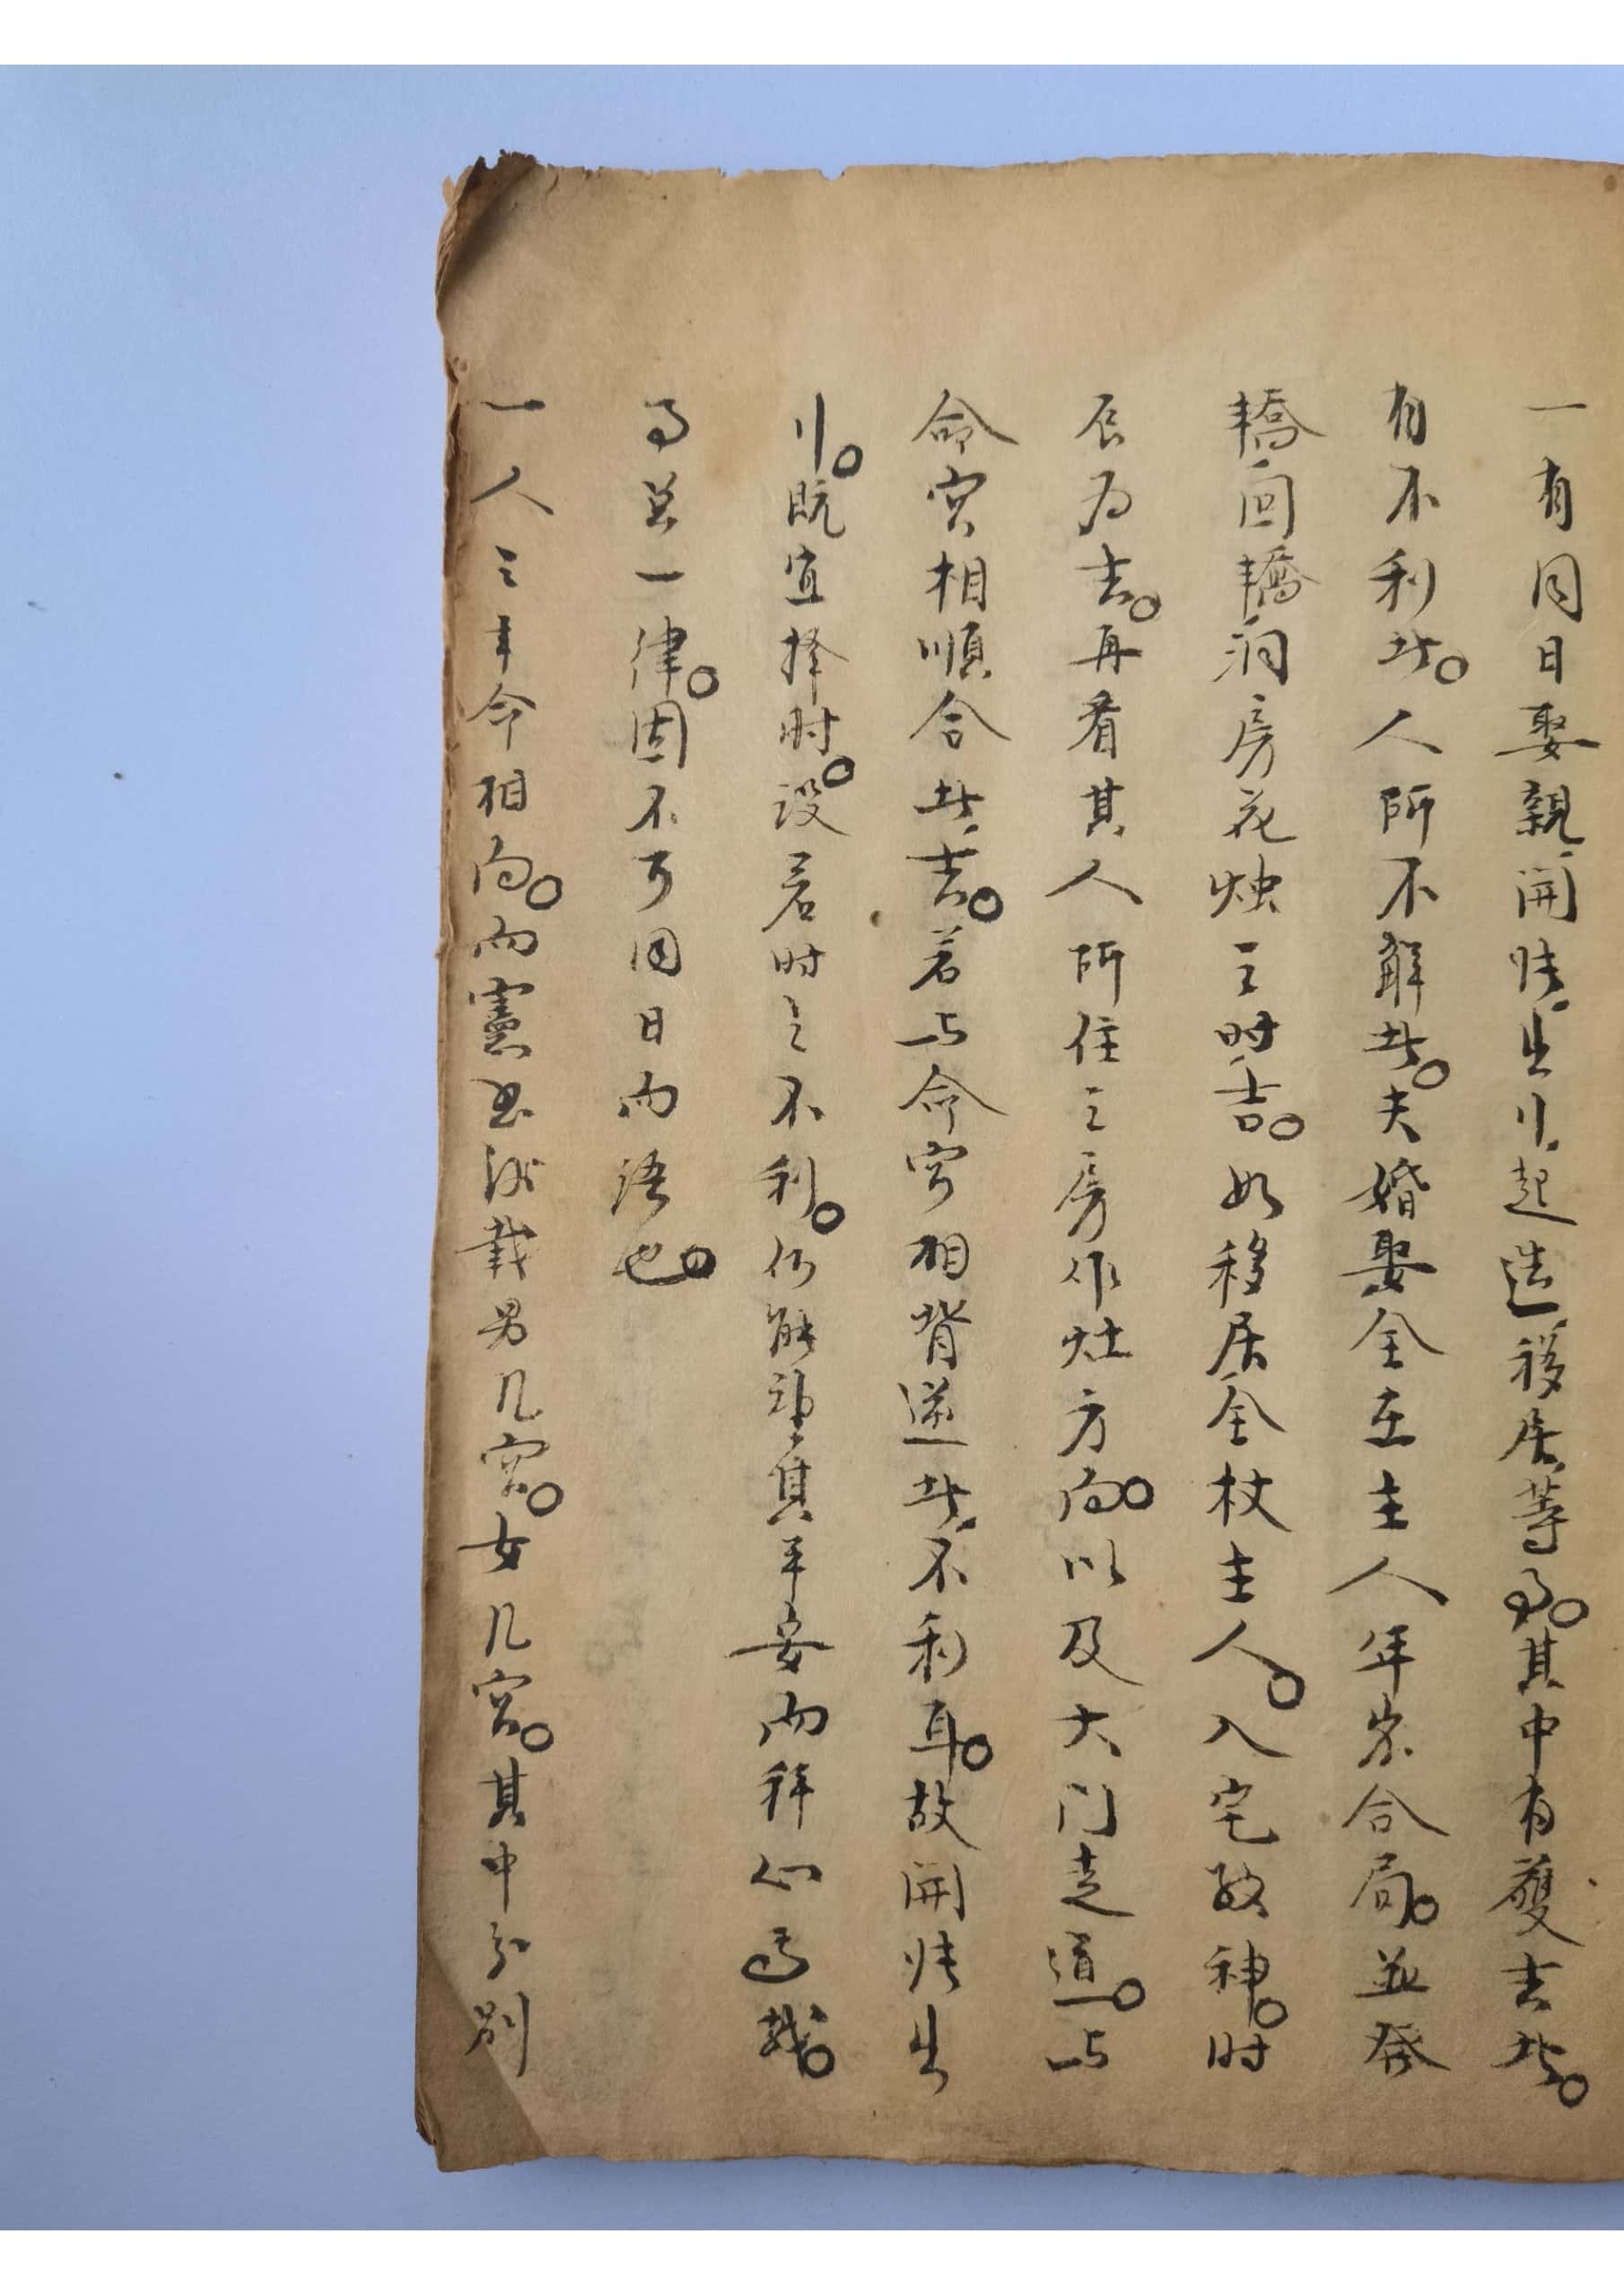 一有同日娶親開张出行起造移居等事。其中有獲吉者。
有不利者。人所不解者。夫婚娶全在主人年家合局。並發
轎回轎洞房花烛之时吉。如移居全杖主人。入宅敬神。时
辰为吉。再看其人所住之房作灶方向。以及大门走道。与
命宮相順合者吉。若与命宮相背逆者不利耳。故開张出
行。既宜择时。设若时之不利。何能望其平安而称心焉哉。
事虽一律。固不可同日而语也。
一人之年命相向。而憲书所载男几宮。女几宮。其中分别